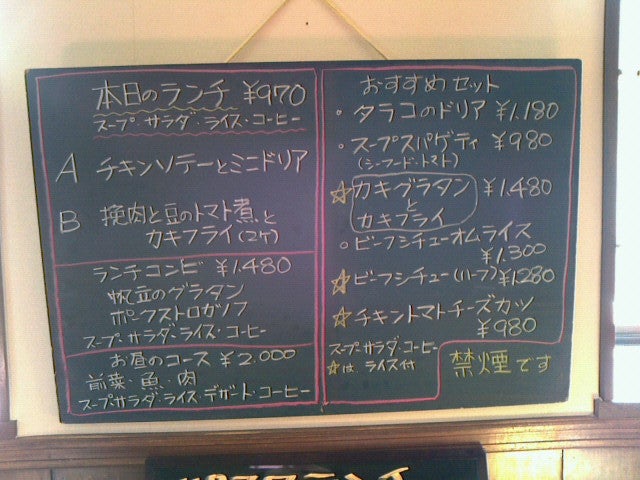 本日のランチ ¥970
スープ・サラダ・ライス・コーヒー
A チキンソテーとミニドリア
B 挽肉と豆のトマト煮と
カキフライ(2ケ)
ランチコンビ ¥1.480
帆立のグラタン
ポークストロガノフ
スープ・サラダ・ライス・コーヒー
お昼のコース ¥2.000
前菜・魚・肉
スープ・サラダ・ライス・デザート・コーヒー
おすすめセット
・タラコのドリア ¥1.180
・スープスパゲティ ¥980
(シーフード・トマト)
☆カキグラタン ¥1.480
と
カキフライ
○ビーフシチューオムライス
¥1.300
☆ビーフシチュー(ハーフ) ¥1.280
☆チキントマトチーズカツ
¥980
スープ・サラダ・コーヒー
☆は ライス付
禁煙です